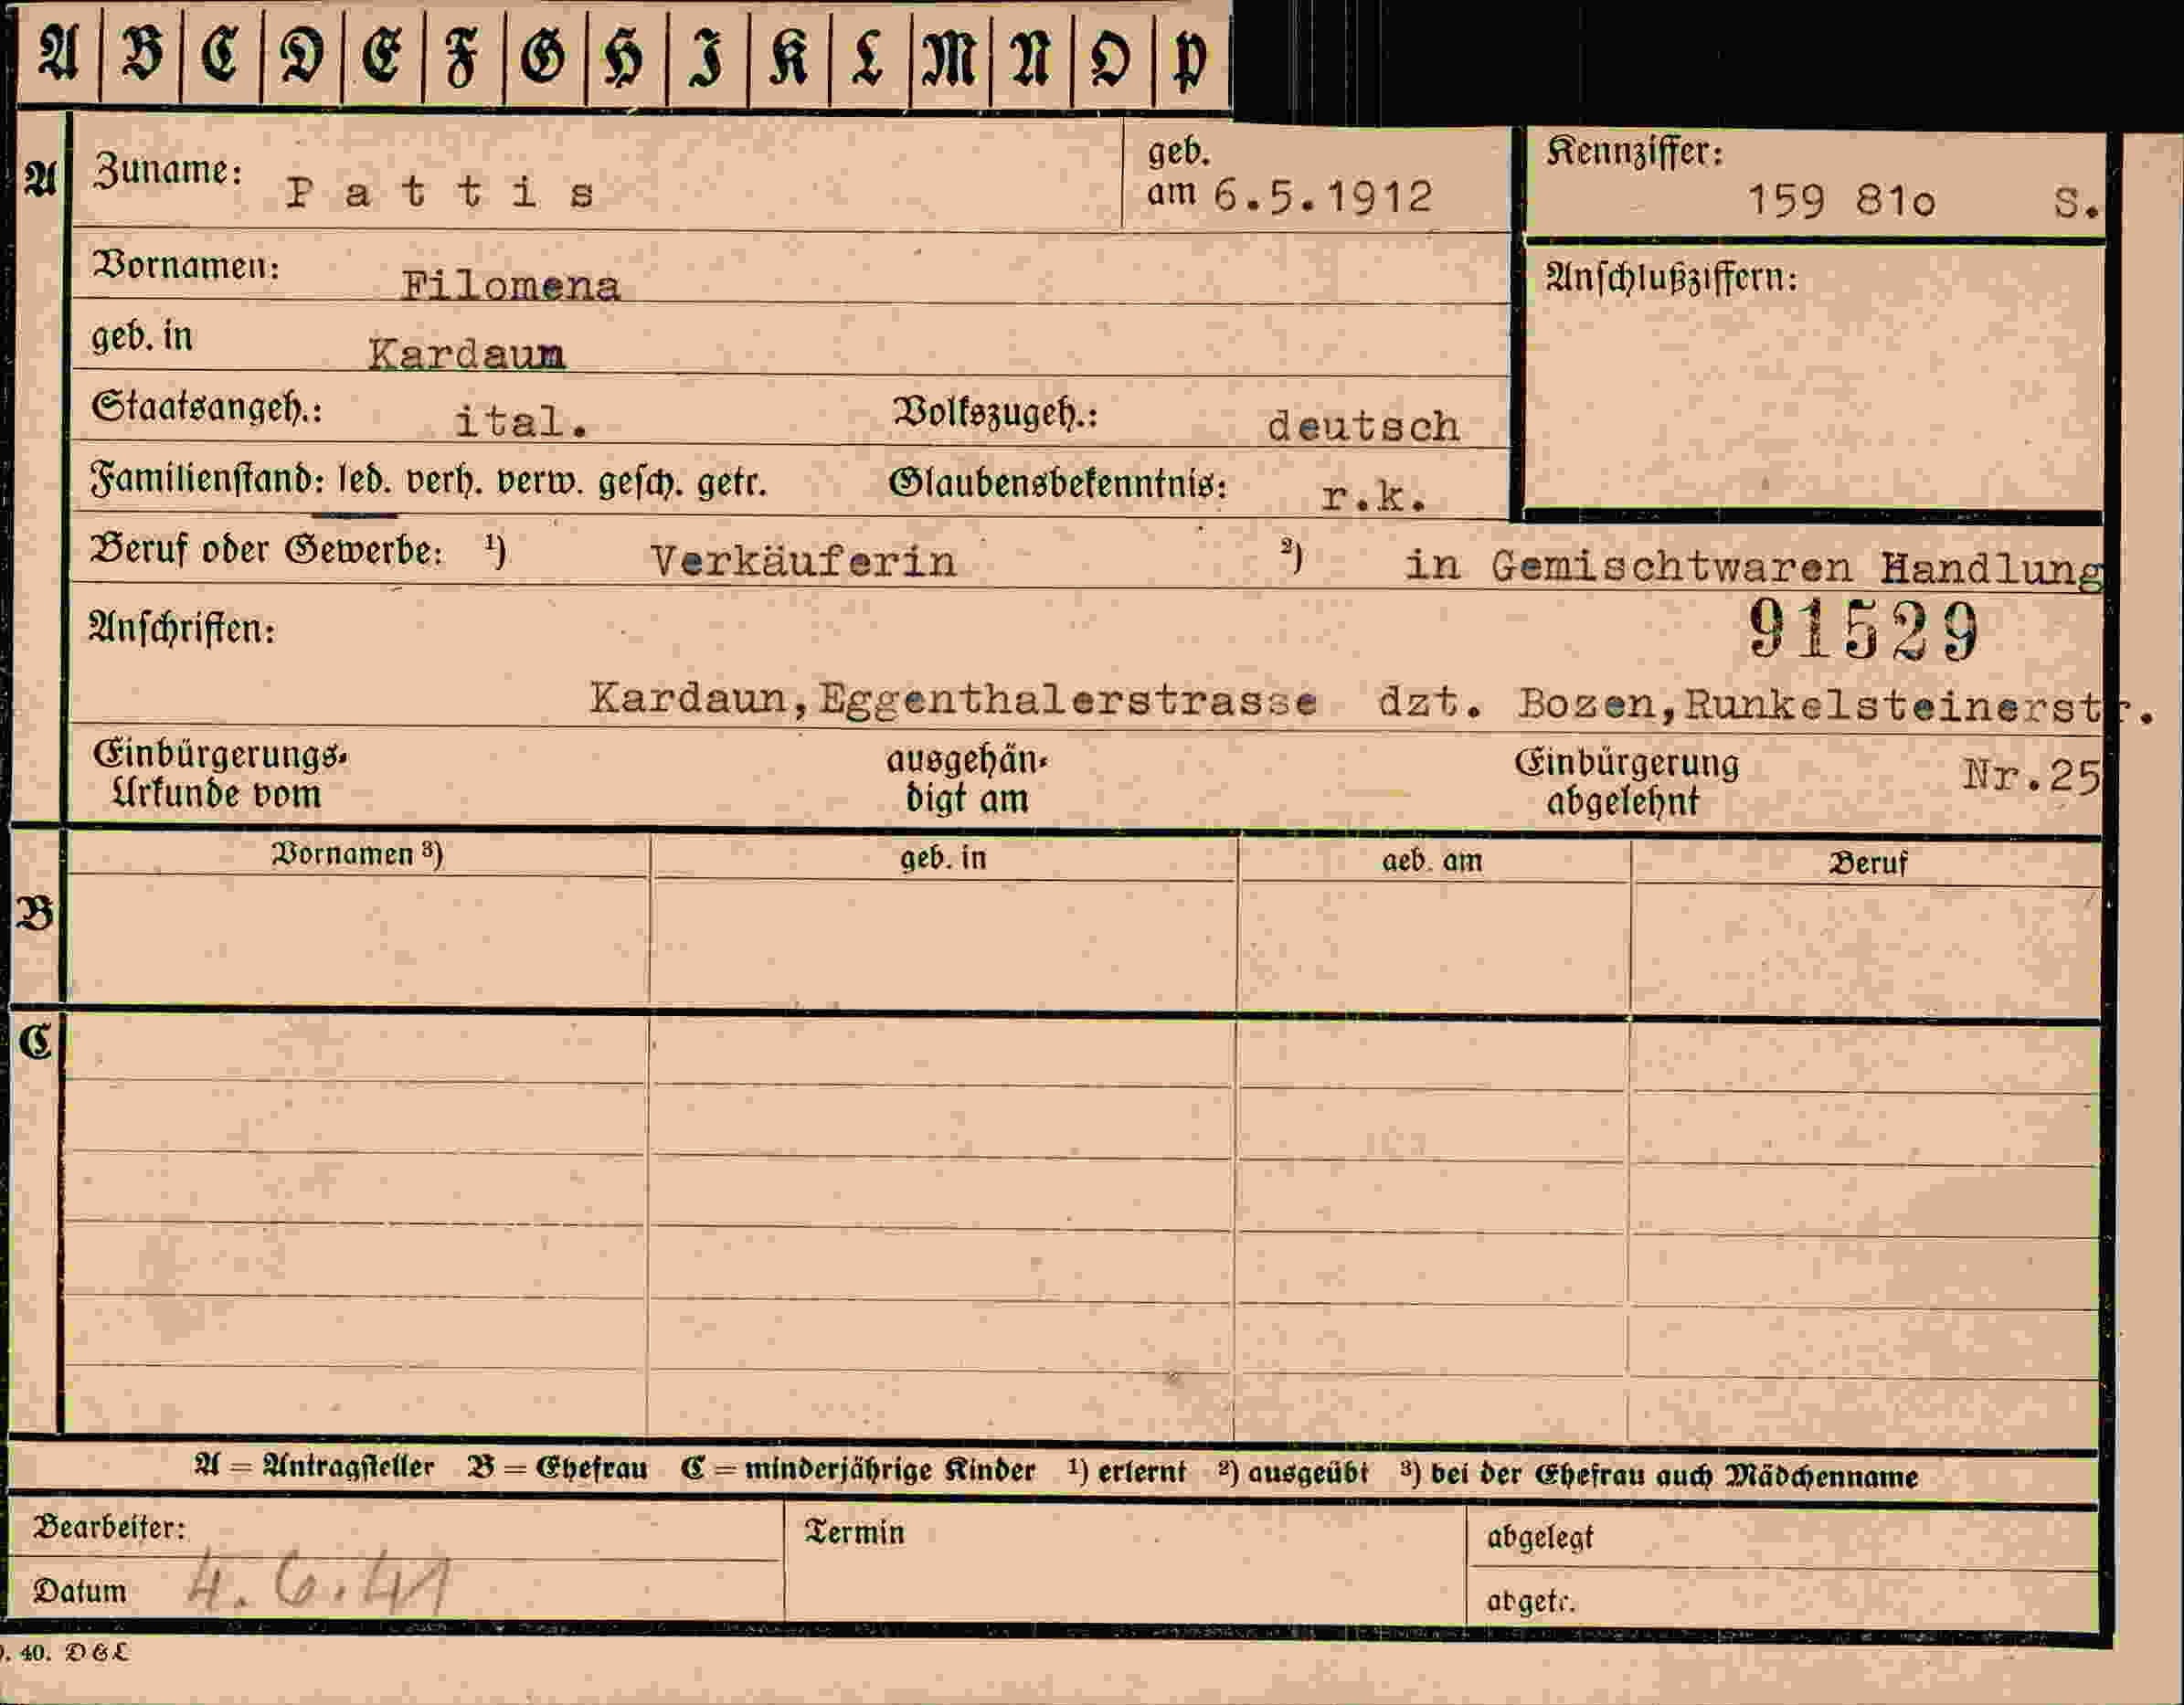 A B C D E F G H I K L M N O P
A Zuname: Pattis geb. am 6.5.1912 Kennziffer: 159 81o S.
Vornamen: Filomena Anschlußziffern:
geb. in Kardaun
Staatsangeh.: ital. Volkszugeh.: deutsch
Familienstand: led. verh. verw. gesch. getr. Glaubensbekenntnis: r.k.
Beruf oder Gewerbe: ¹) Verkäuferin ²) in Gemischtwaren Handlung
Anschriften: 91529
Kardaun, Eggenthalerstrasse dzt. Bozen, Runkelsteinerstr.
Einbürgerungs- ausgehän- Einbürgerung Nr.25
Urkunde vom digt am abgelehnt
Vornamen ³) geb. in geb. am Beruf
B
C
A = Antragsteller B = Ehefrau C = minderjährige Kinder ¹) erlernt ²) ausgeübt ³) bei der Ehefrau auch Mädchenname
Bearbeiter: Termin abgelegt
Datum 4.6.41 abgetr.
. 40. D G L